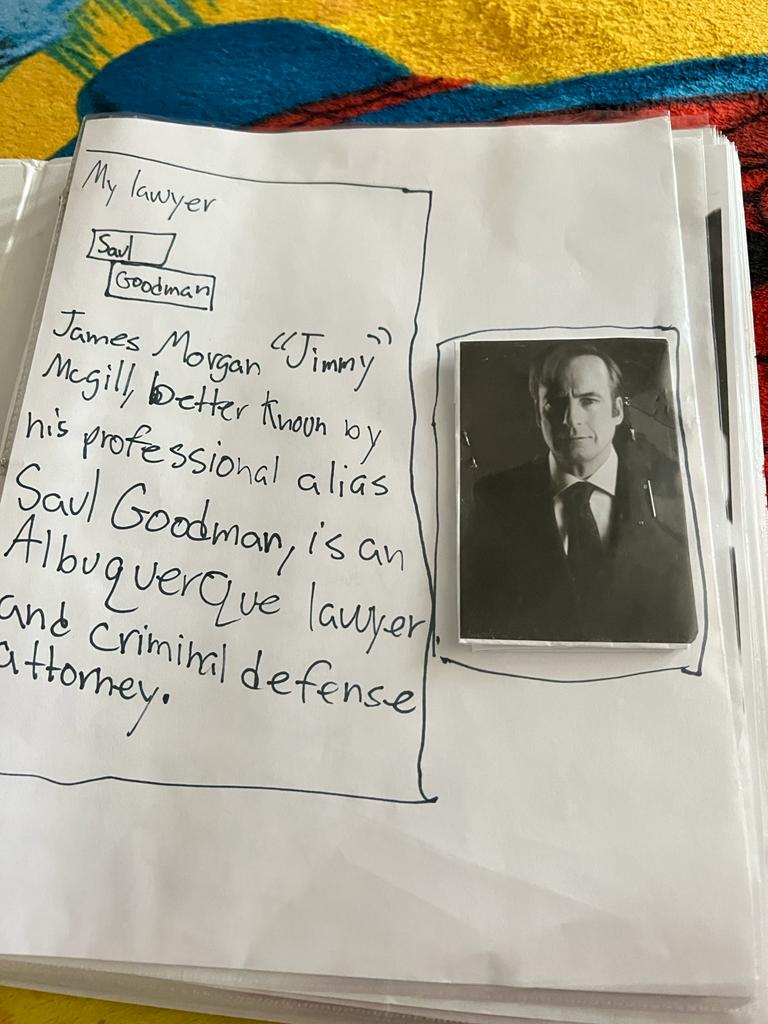 My lawyer
Saul
Goodman
James Morgan “Jimmy”
Mcgill, better Known by
his professional alias
Saul Goodman, is an
Albuquerque lawyer
and criminal defense
attorney.